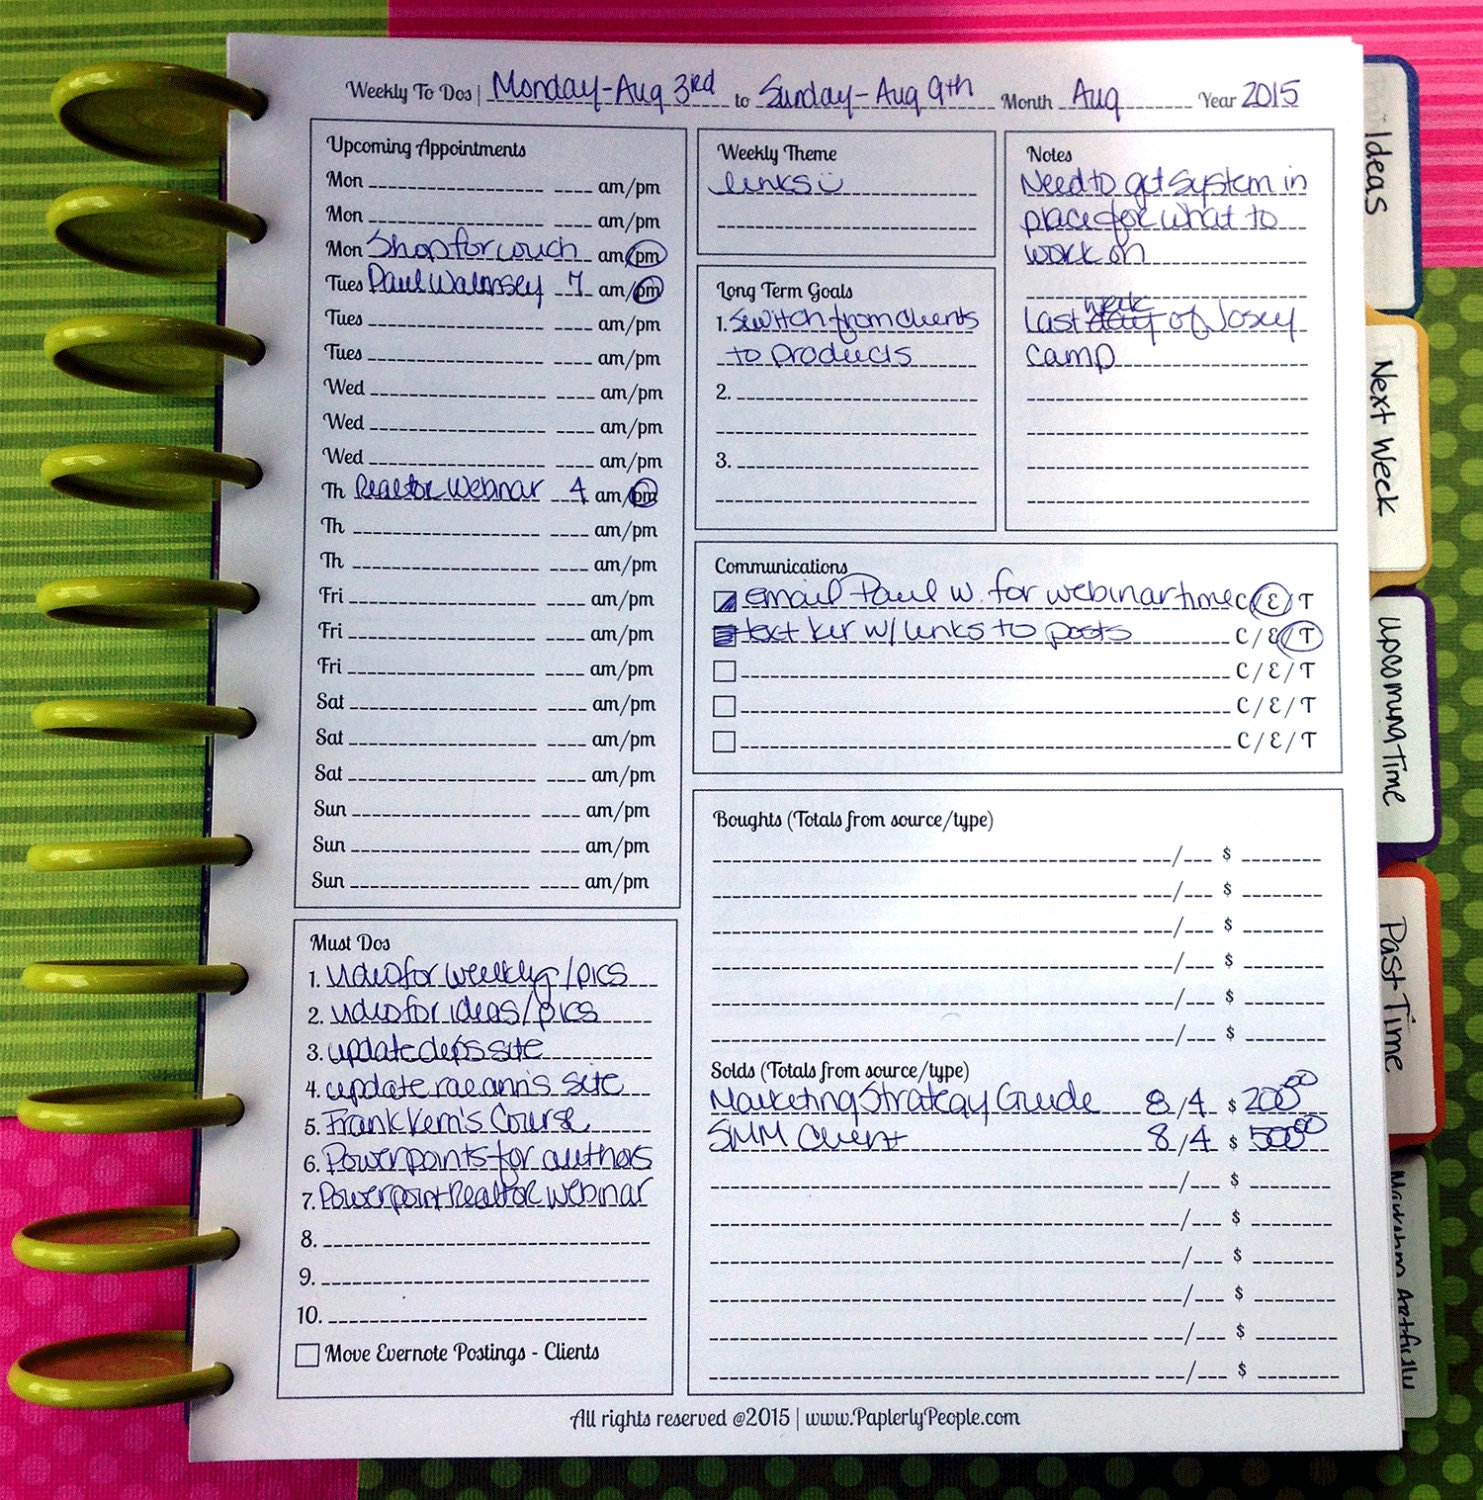 Weekly To Dos | Monday-Aug 3rd to Sunday-Aug 9th Month Aug Year 2015
Upcoming Appointments
Mon am/pm
Mon am/pm
Mon Shop for couch am/pm
Tues Paul Walmsey 7 am/pm
Tues am/pm
Tues am/pm
Wed am/pm
Wed am/pm
Wed am/pm
Th Realtor Webinar 4 am/pm
Th am/pm
Th am/pm
Fri am/pm
Fri am/pm
Fri am/pm
Sat am/pm
Sat am/pm
Sat am/pm
Sun am/pm
Sun am/pm
Sun am/pm
Must Dos
1. video for weekly/pics
2. video for ideas/pics
3. update deb's site
4. update rae ann's site
5. Frank Kern's Course
6. Powerpoints for authors
7. Powerpoint Realtor Webinar
8.
9.
10.
Move Evernote Postings - Clients
Weekly Theme
links
Long Term Goals
1. Switch from clients
to products
2.
3.
Notes
Need to get system in
place for what to
work on
week
Last day of Josey
camp
Communications
email Paul W. for webinar time C/E/T
text w/ links to posts C/E/T
C/E/T
C/E/T
C/E/T
Boughts (Totals from source/type)
/ $
/ $
/ $
/ $
/ $
/ $
Solds (Totals from source/type)
Marketing Strategy Guide 8/4 $ 200.00
SMM Client 8/4 $ 500.00
/ $
/ $
/ $
/ $
/ $
/ $
All rights reserved @2015 | www.PaplerlyPeople.com
Ideas
Next Week
Upcoming Time
Past Time
Artfully